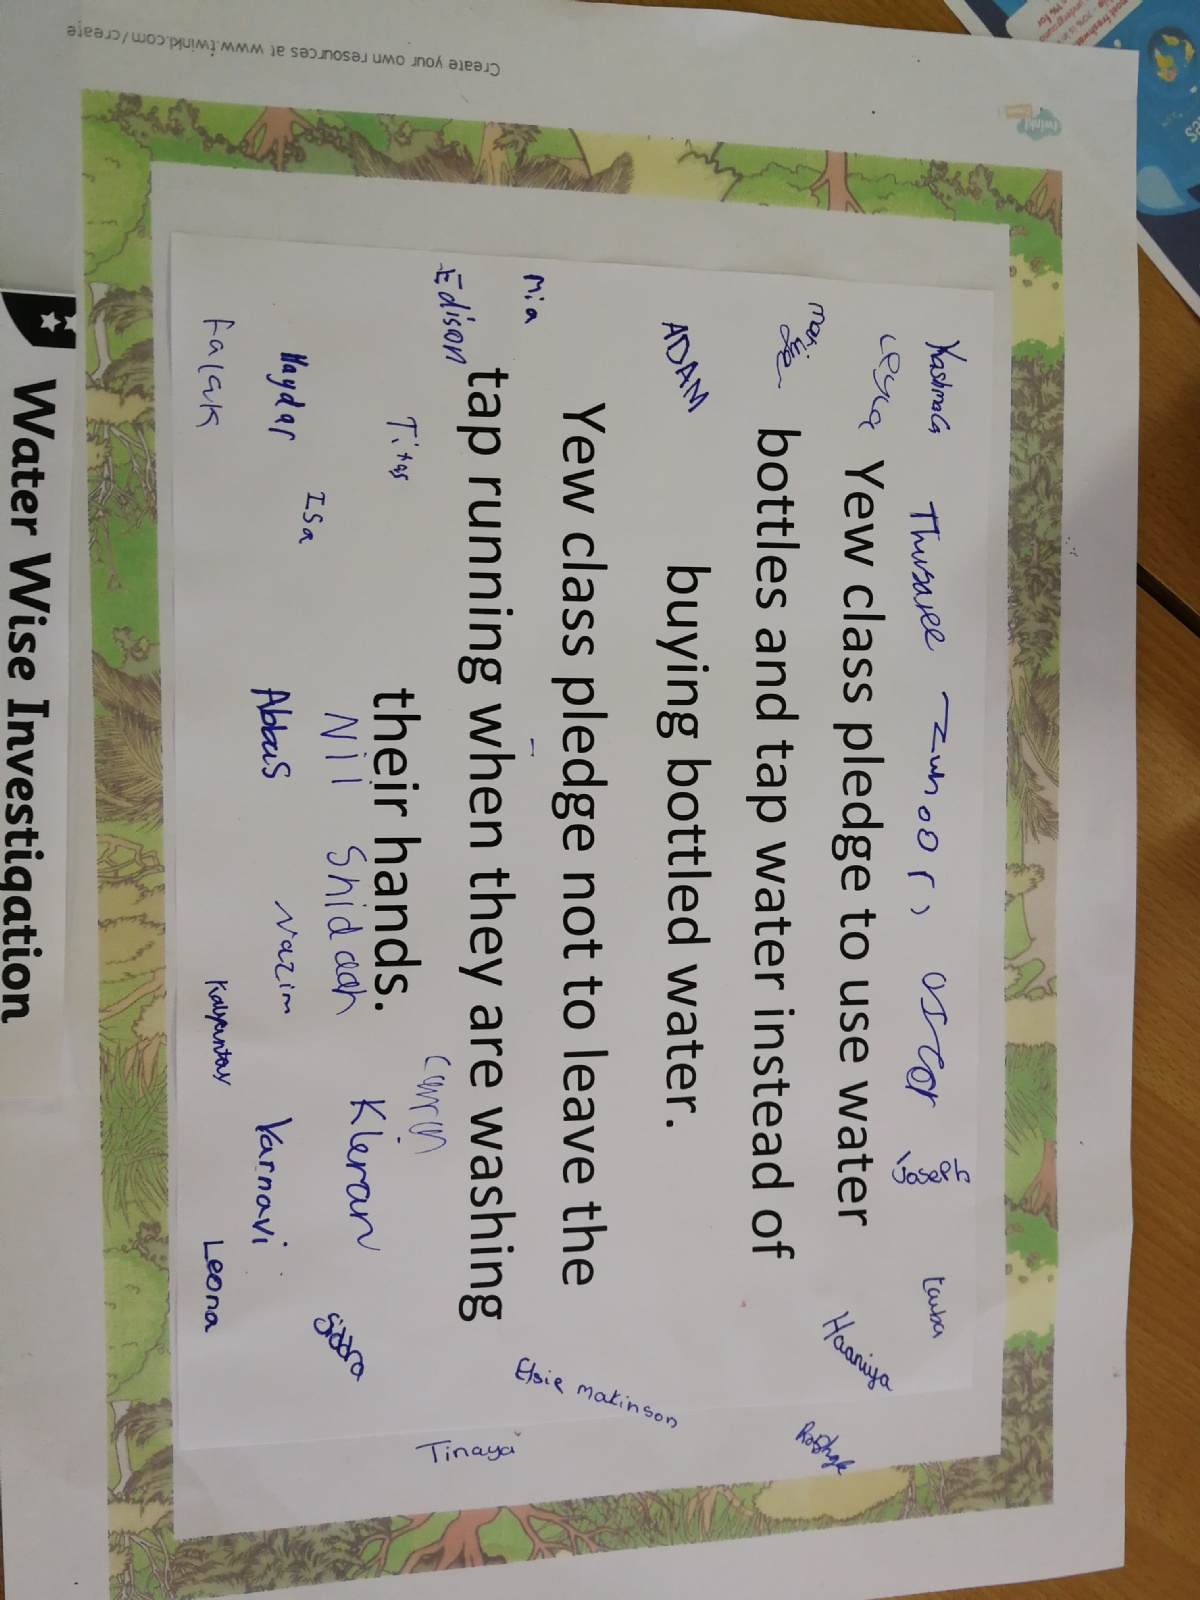 Kashmala Thusaree Zuhoor Joseph tauba
Leya Yew class pledge to use water
bottles and tap water instead of Haaniya
ADAM buying bottled water.
Mia Yew class pledge not to leave the Elsie Makinson
Edison tap running when they are washing Tinaya
Titas their hands.
Isa Nil Shiddah Kieran
Haydar Abbas Nazim Varnavi
Falak Leona
Water Wise Investigation
Create your own resources at www.twinkl.com/create
twinkl